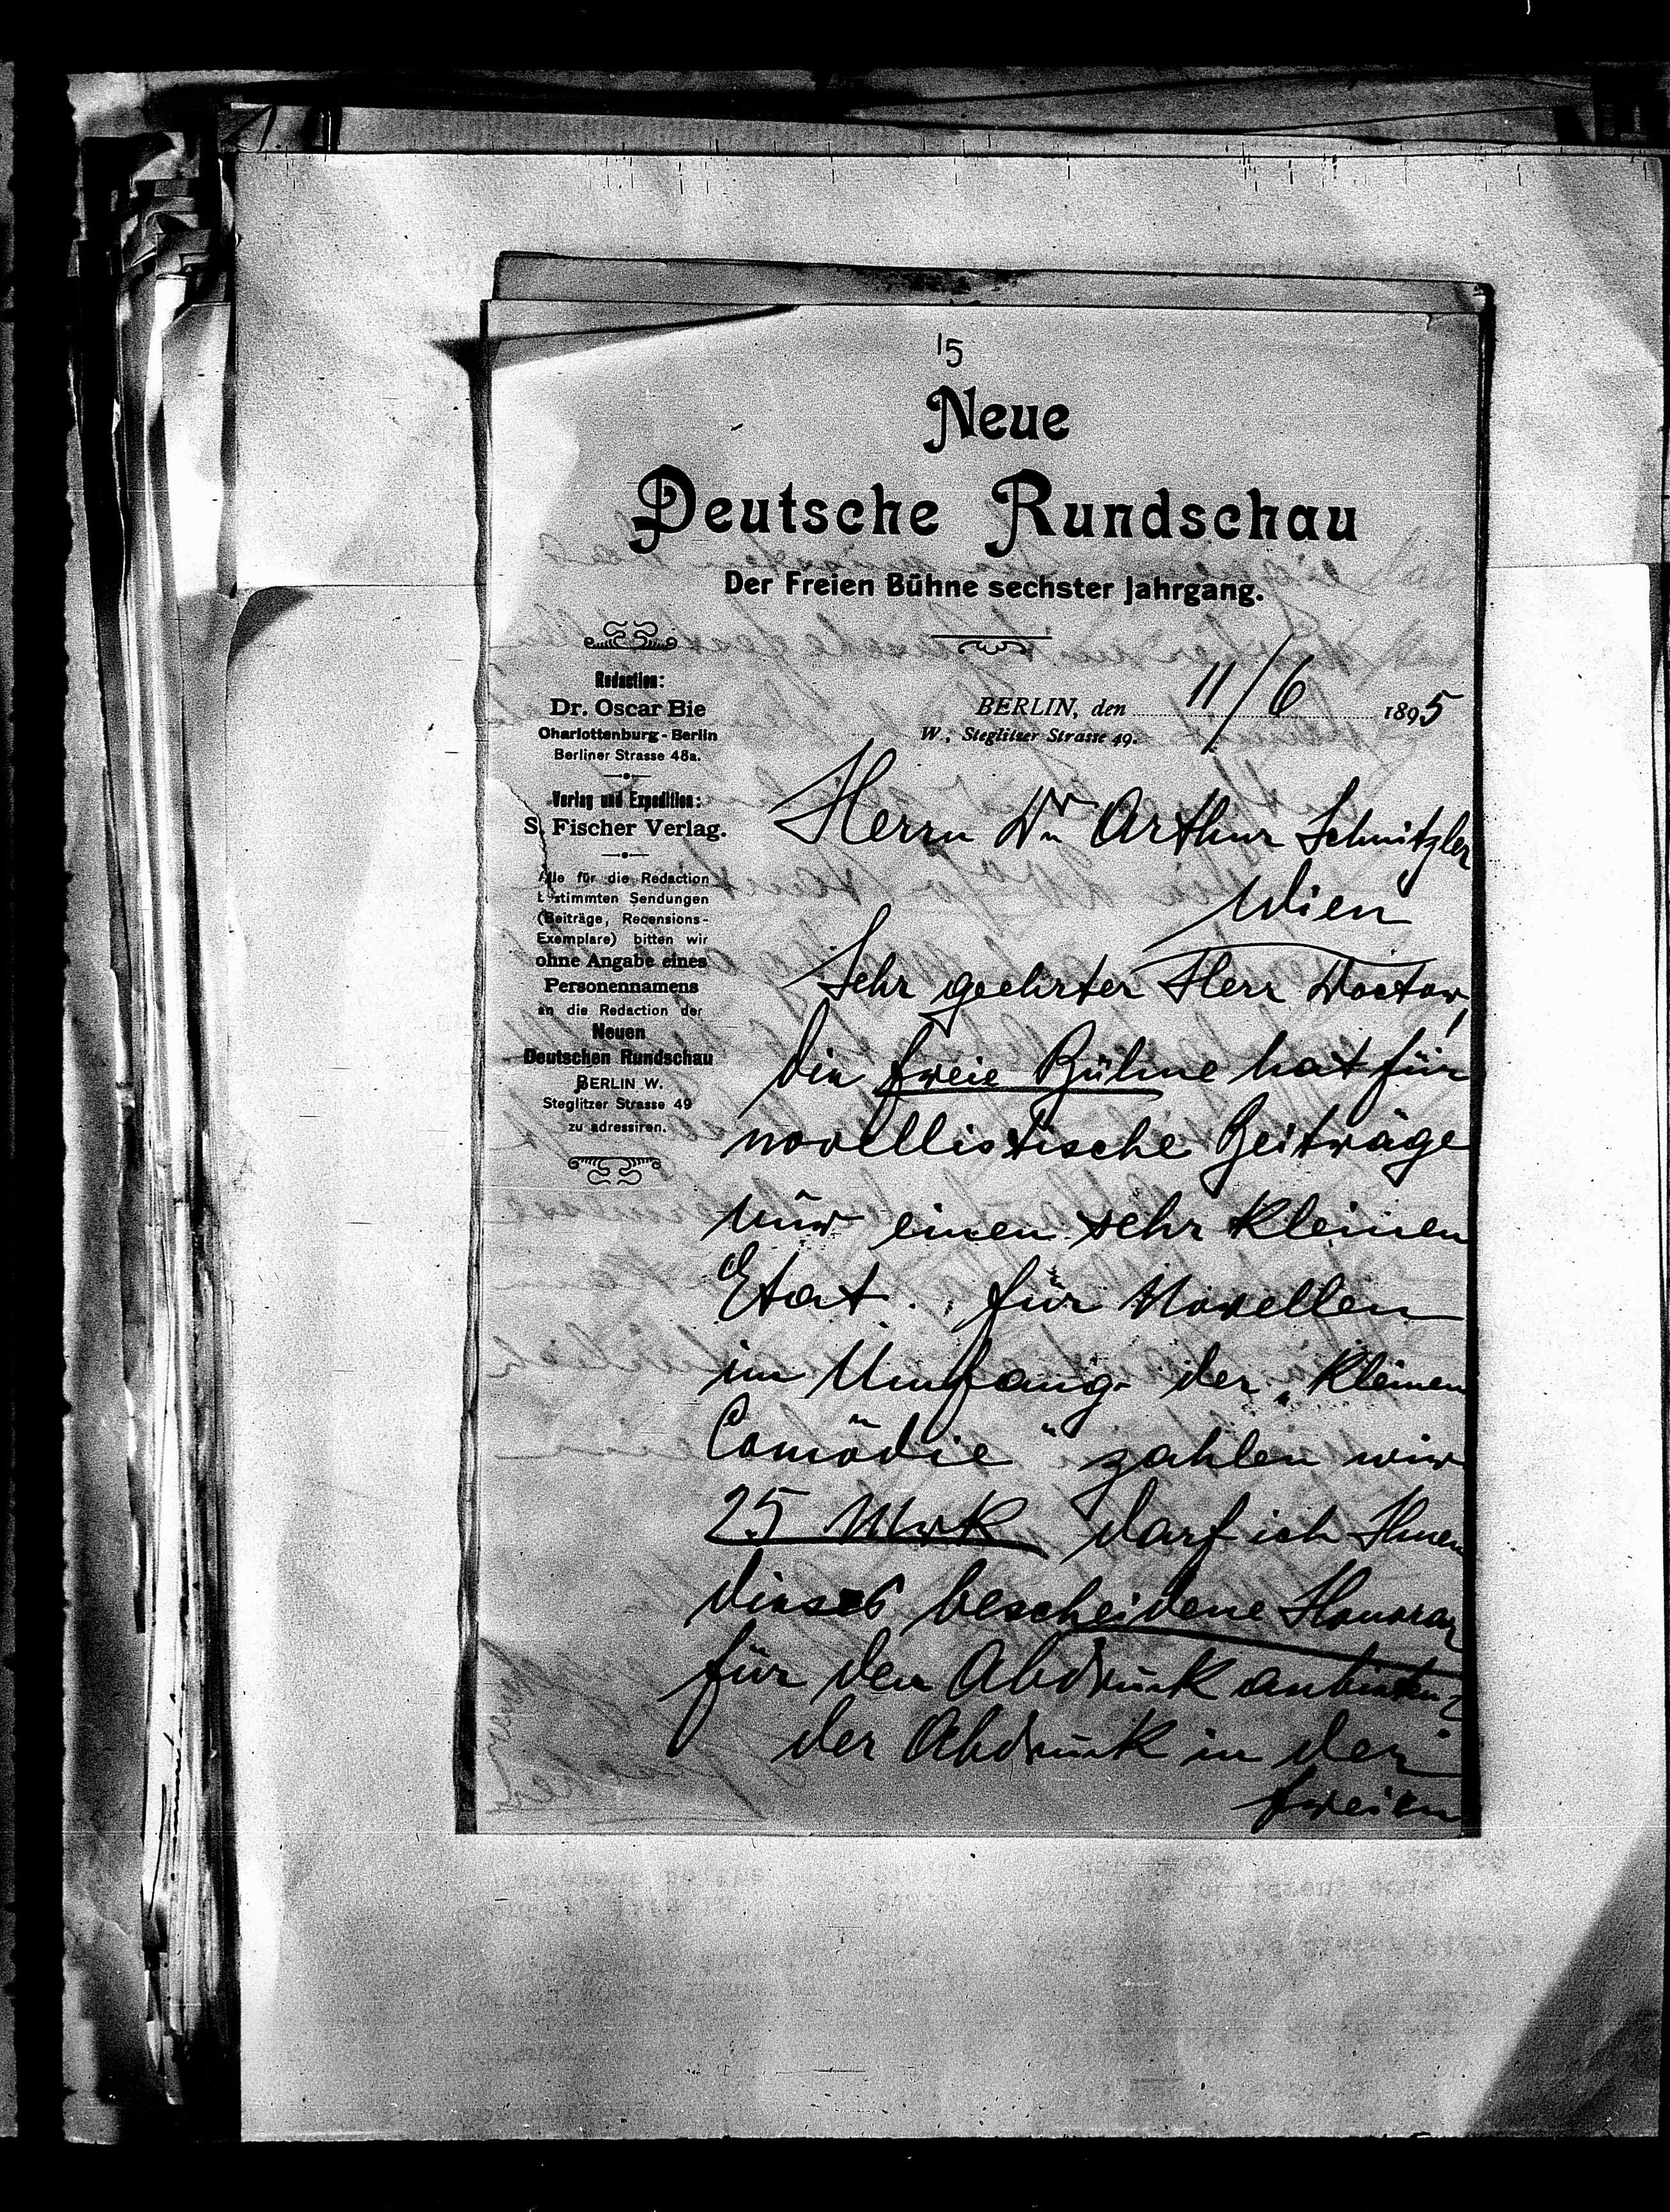 15
Neue
Deutsche Rundschau
Der Freien Bühne sechster Jahrgang.
Redaction:
Dr. Oscar Bie
Charlottenburg-Berlin
Berliner Strasse 48a.
Verlag und Expedition:
S. Fischer Verlag.
Alle für die Redaction
bestimmten Sendungen
(Beiträge, Recensions-
Exemplare) bitten wir
ohne Angabe eines
Personennamens
an die Redaction der
Neuen
Deutschen Rundschau
BERLIN W.
Steglitzer Strasse 49
zu adressiren.
BERLIN, den 11/6 1895
W., Steglitzer Strasse 49.
Herrn Dr Arthur Schnitzler
Wien
Sehr geehrter Herr Doctor,
die freie Bühne hat für
novellistische Beiträge
nur einen sehr kleinen
Etat. für Novellen
im Umfang der „kleinen
Comödie" zahlen wir
25 Mrk darf ich Ihnen
dieses bescheidene Honorar
für den Abdruck anbieten?
der Abdruck in der
freien